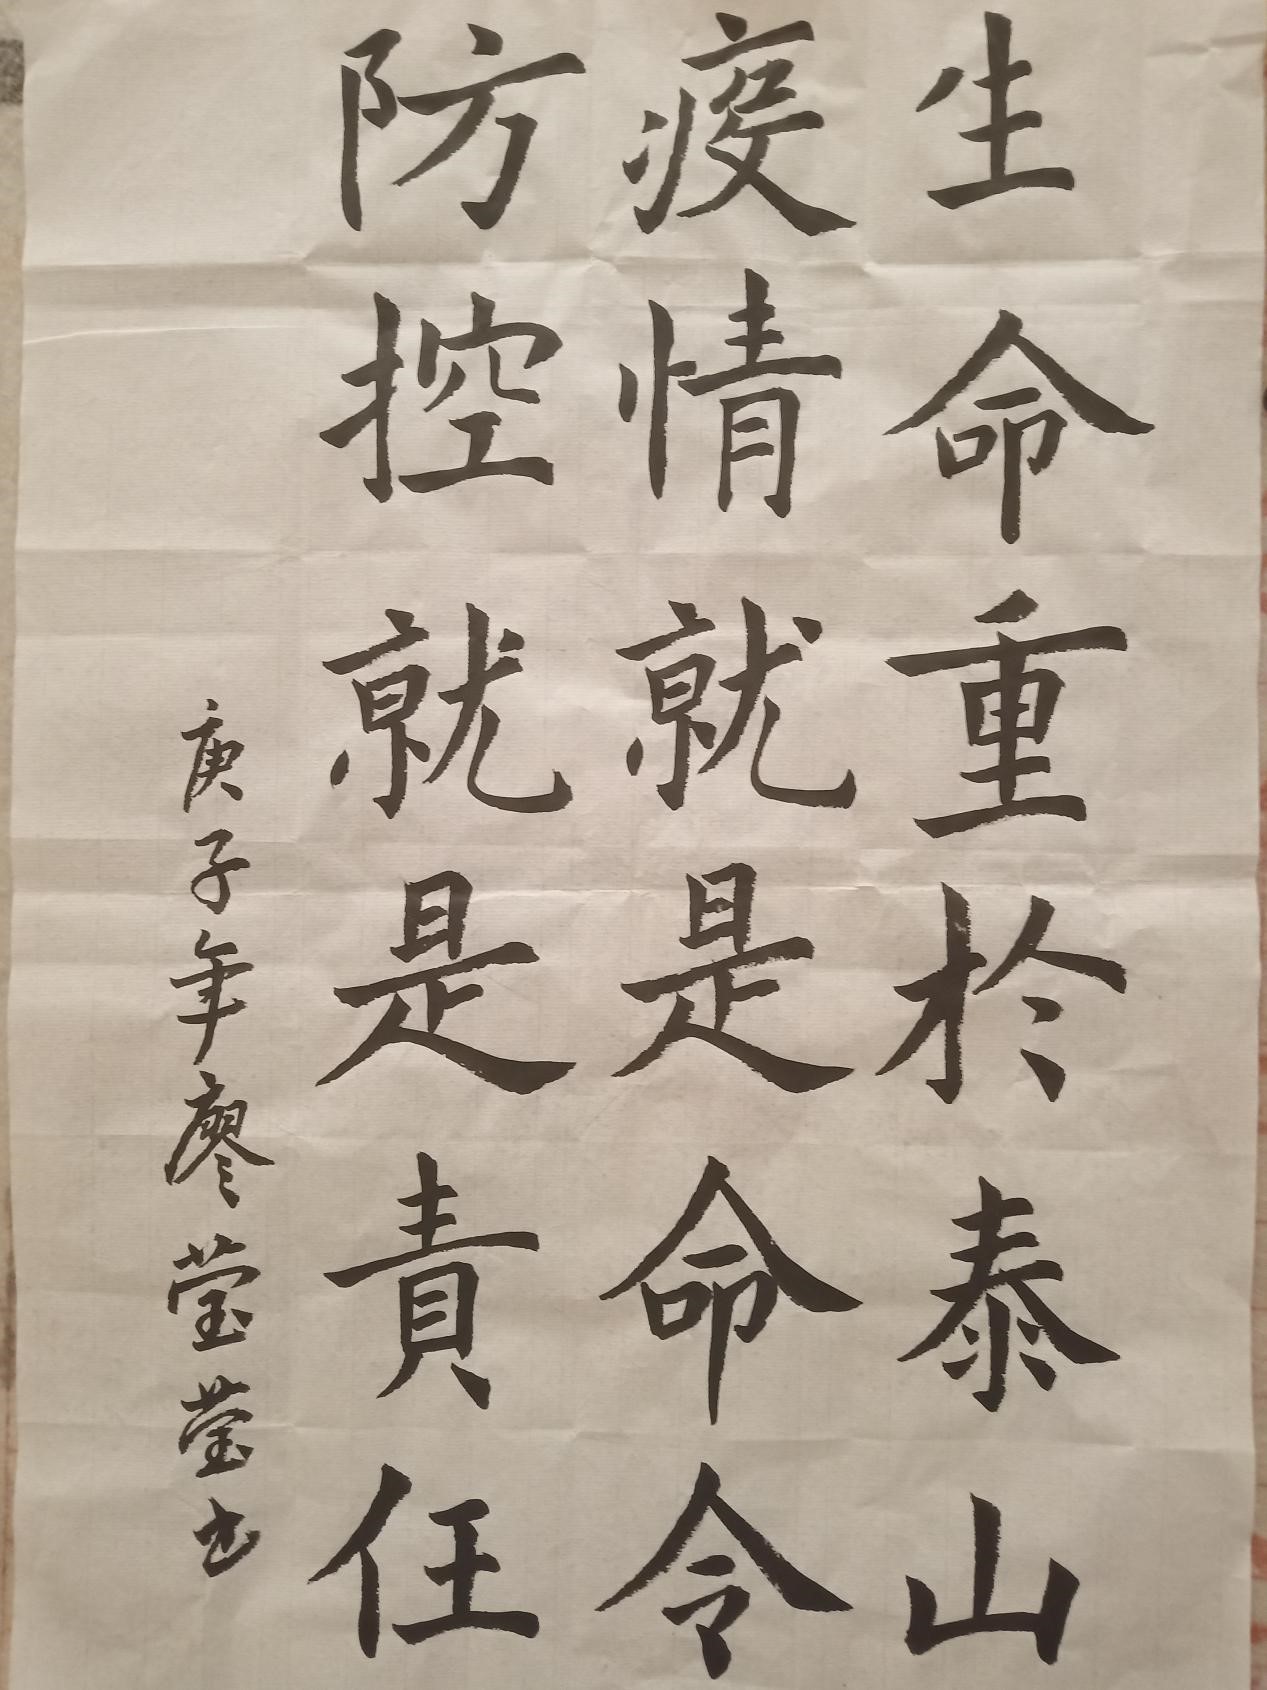 生命重於泰山
疫情就是命令
防控就是責任
庚子年廖莹莹书